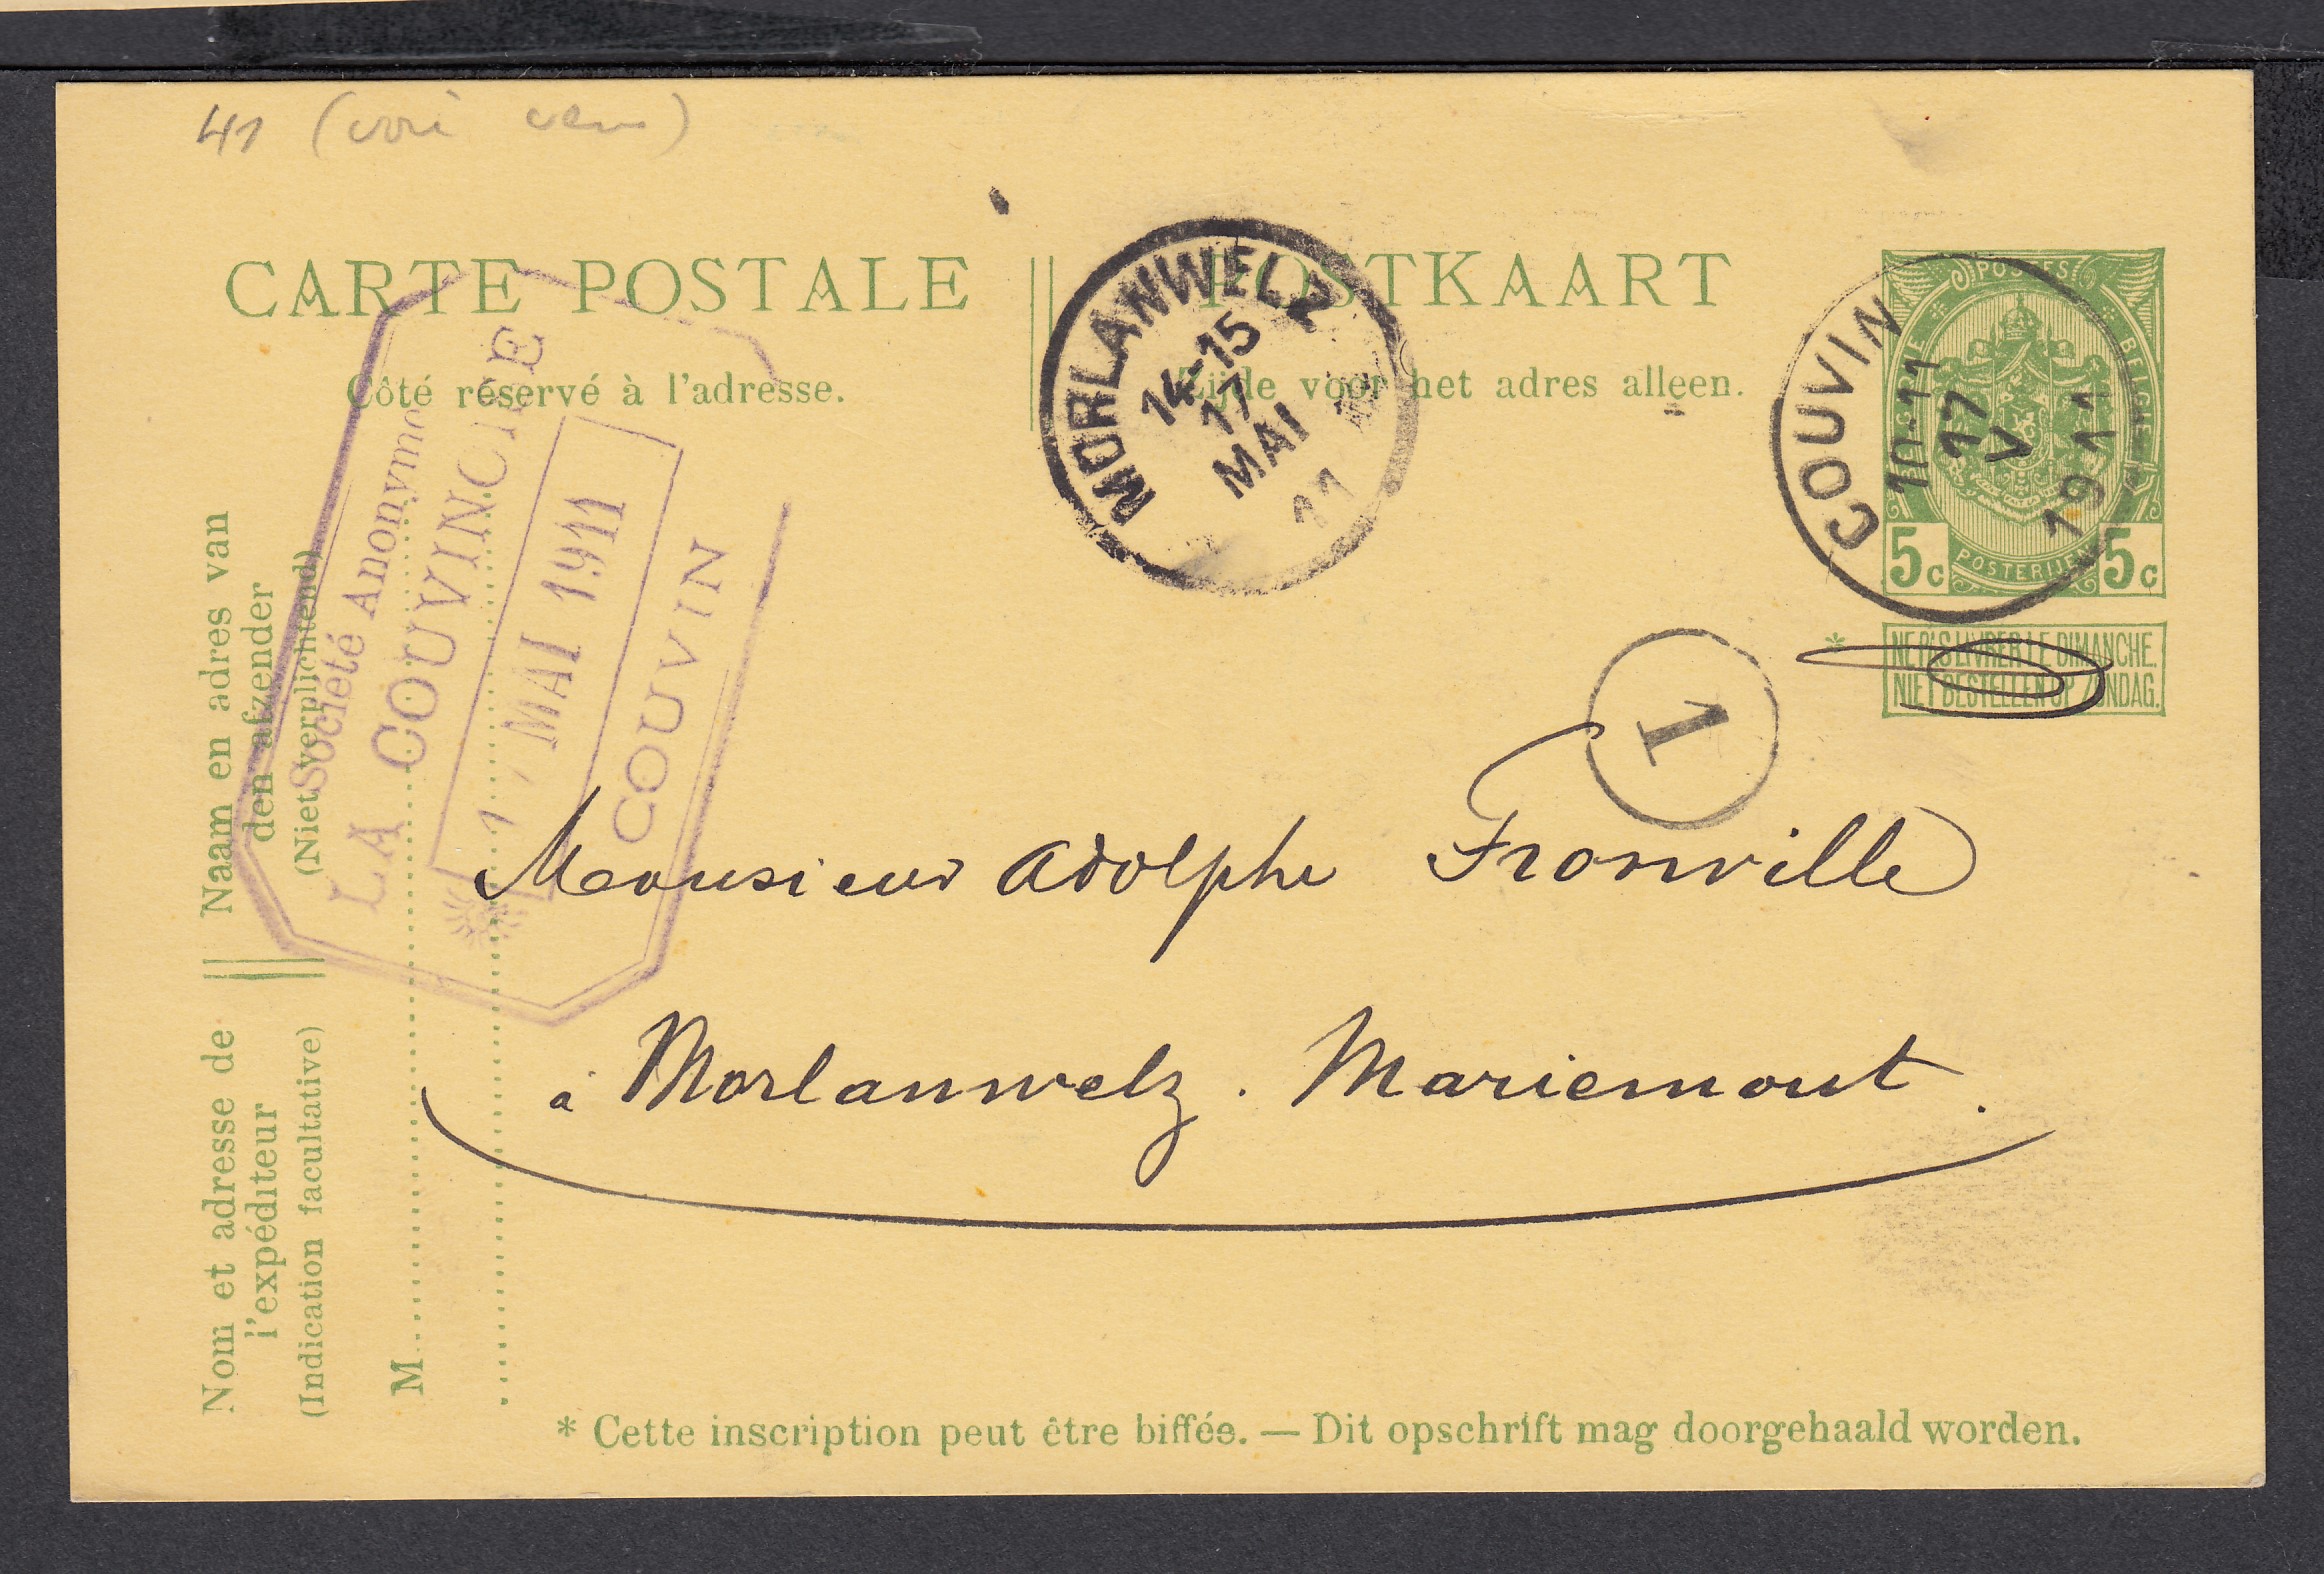 41 (voir verso)
CARTE POSTALE
POSTKAART
Côté réservé à l'adresse.
Zijde voor het adres alleen.
MORLANWELZ
14-15
17
MAI
11
COUVIN
10-11
17
V
1911
POSTES
BELGIQUE
BELGIE
POSTERIJEN
5c 5c
* NE PAS LIVRER LE DIMANCHE.
NIET BESTELLEN OP ZONDAG.
1
Société Anonyme
LA COUVINOISE
MAI 1911
COUVIN
Monsieur Adolphe Fronville
à Morlanwelz. Mariemont.
Naam en adres van
den afzender
(Niet verplichtend)
Nom et adresse de
l'expéditeur
(Indication facultative)
M
* Cette inscription peut être biffée. — Dit opschrift mag doorgehaald worden.